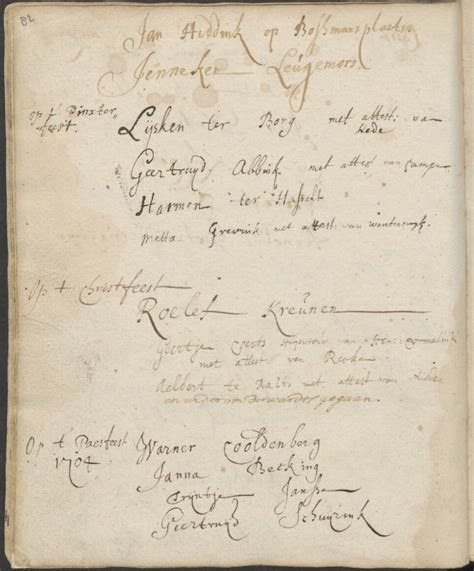 82
Jan Hiddink op Boshmans plaetse
Jenneken Leugemors
op 't Pinxter
feest.
Lijsken ter Borg met attest: van
Rede
Geertruyd Abbink met attest van Campe
Harmen ter Hasselt
Metta Grevink met attest van wenterswyk.
Op 't Christfeest
Roelef Kreunen
Geertje Coots van
met attest. van Reeke
Aelbert te met attest van Rede
en wederom derwaerder gegaan.
Op 't Paesfeest
1704
Warner Cooldenberg
Janna Becking
Trijntje Jansse
Geertruyd Schuirink